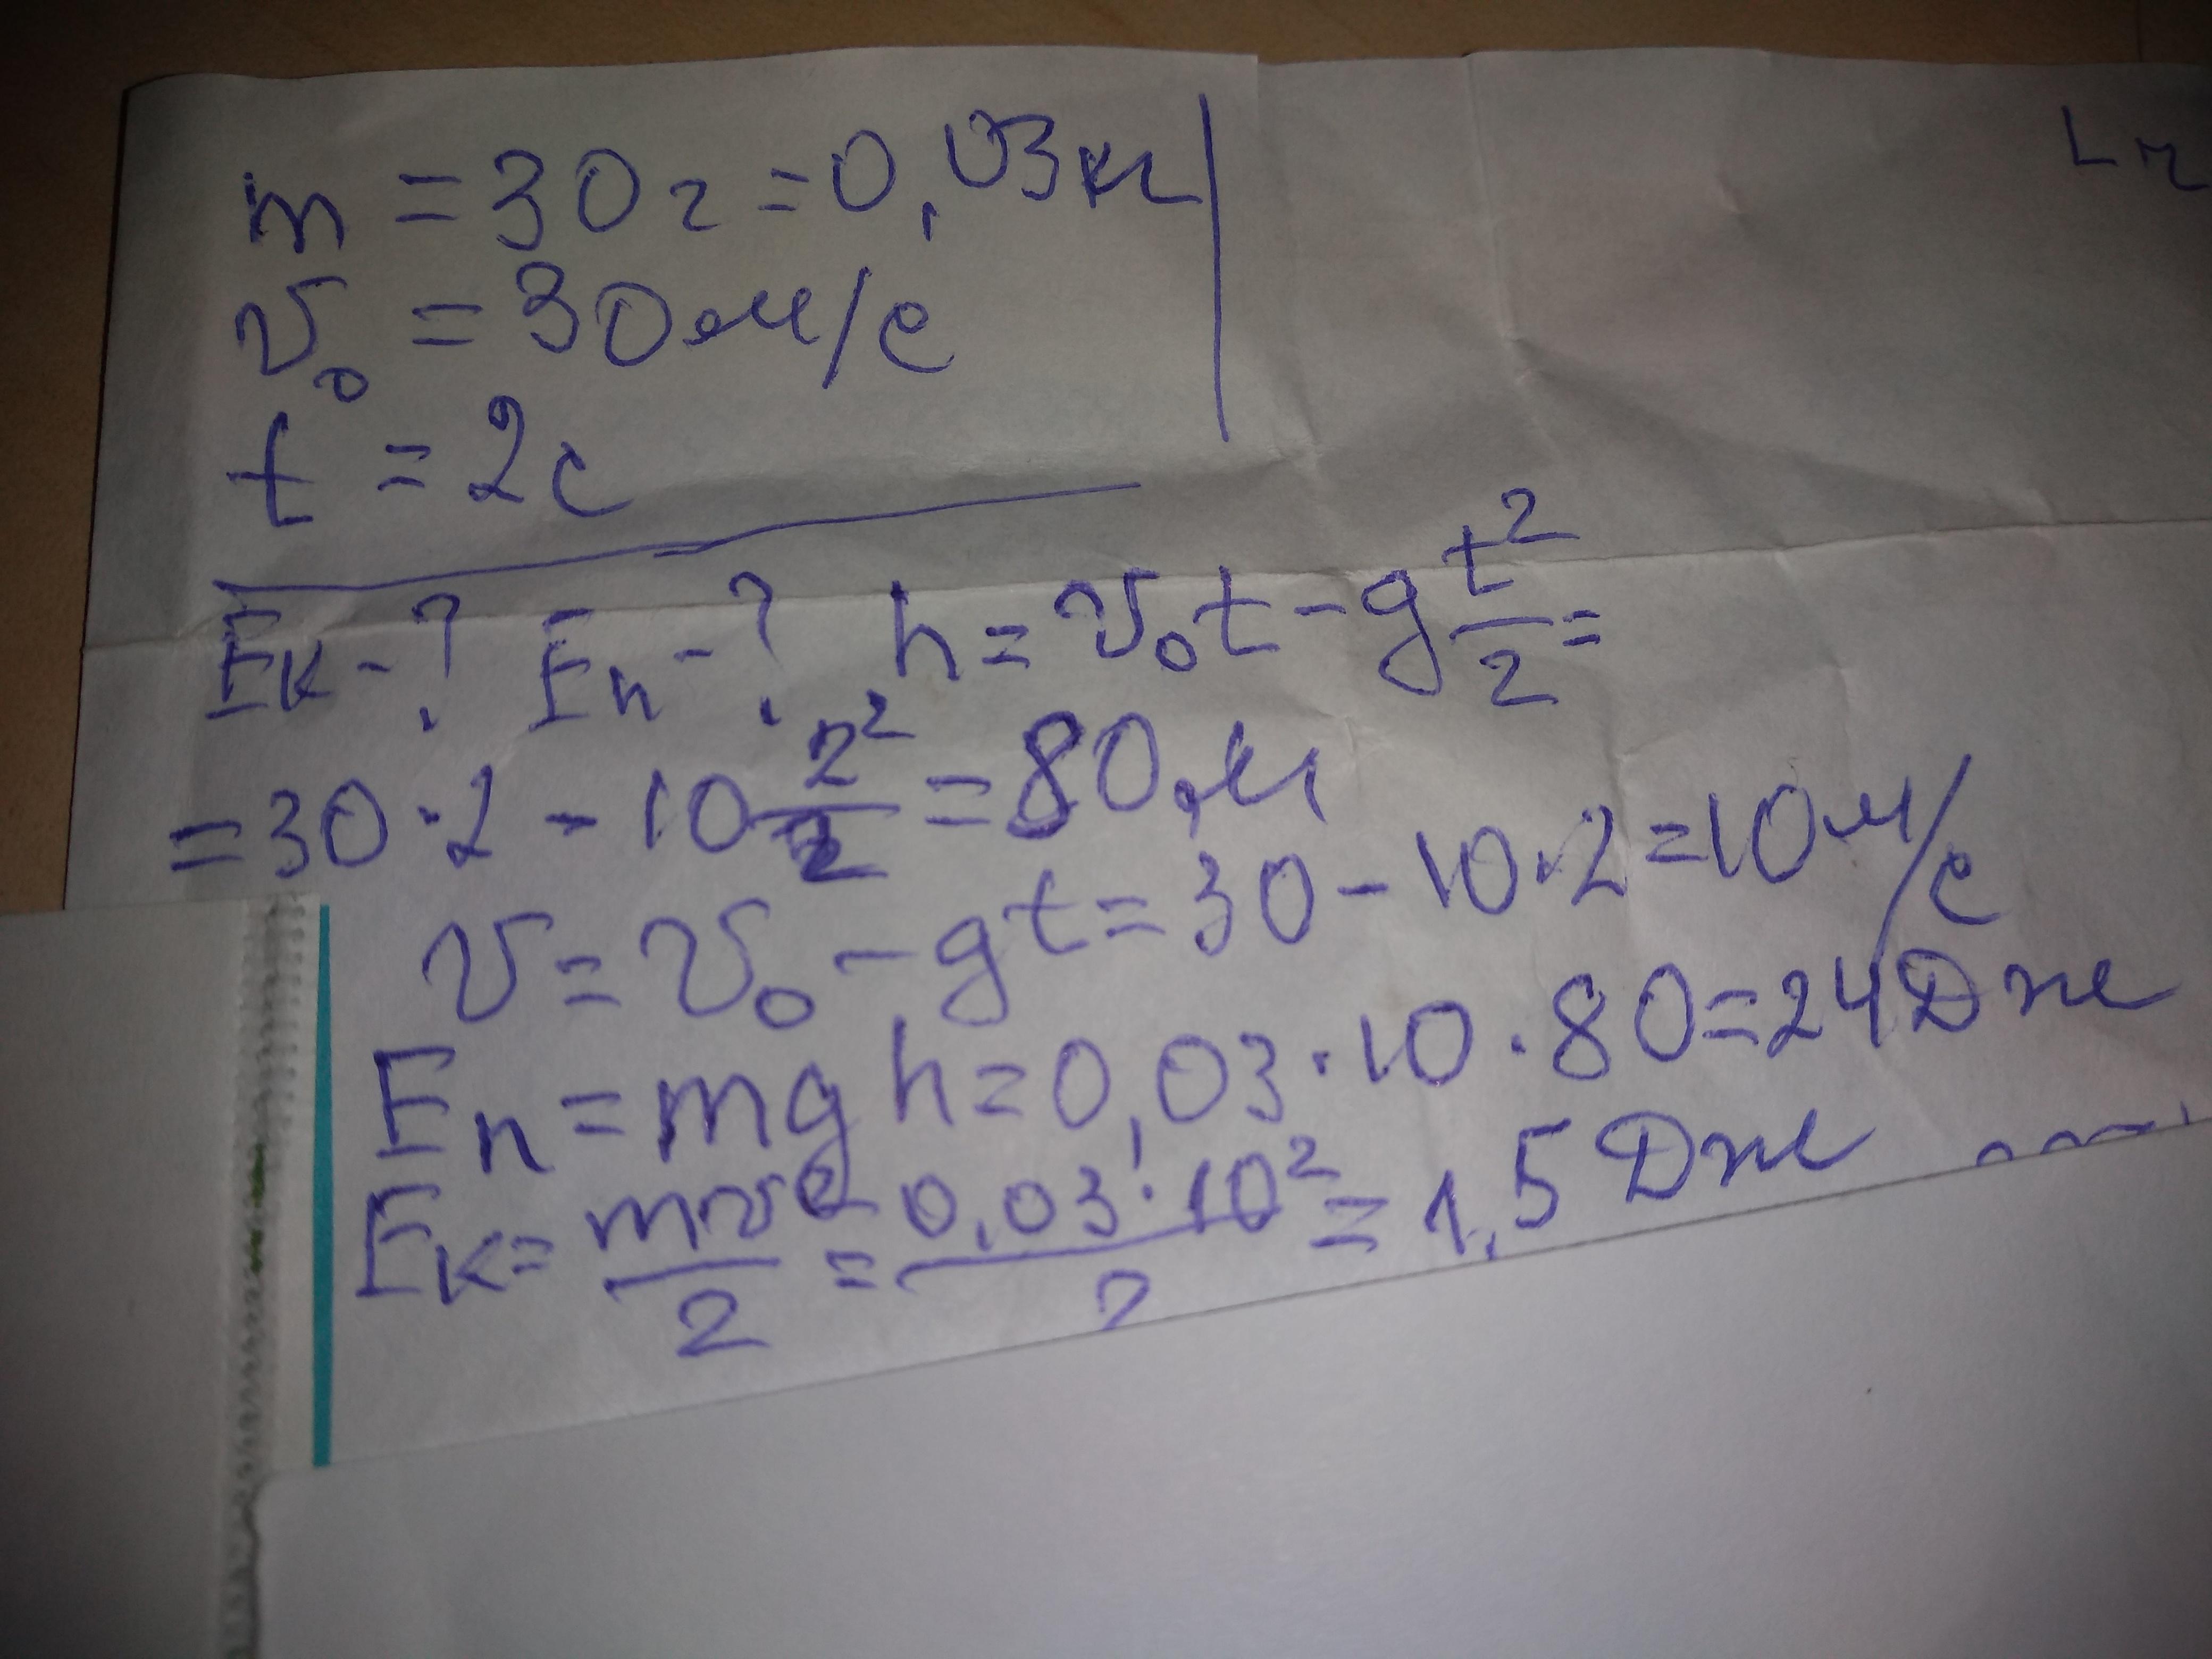 m = 30 г = 0,03 кг
v₀ = 30 м/с
t = 2 с
Eк - ? Eп - ? h = v₀t - g t²/2 =
= 30 · 2 - 10 2²/2 = 80 м
v = v₀ - gt = 30 - 10 · 2 = 10 м/с
Eп = mgh = 0,03 · 10 · 80 = 24 Дж
Eк = mv²/2 = 0,03 · 10²/2 = 1,5 Дж